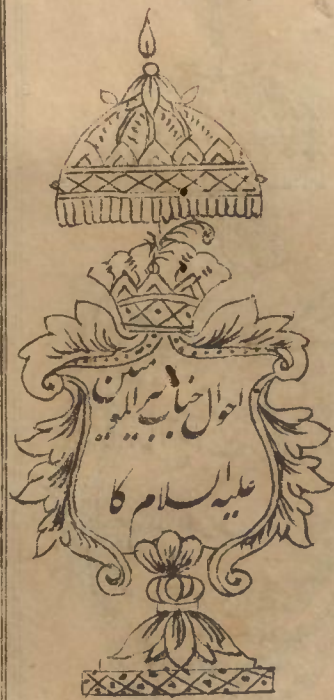 احوال جناب امیر المومنین
علیہ السلام کا